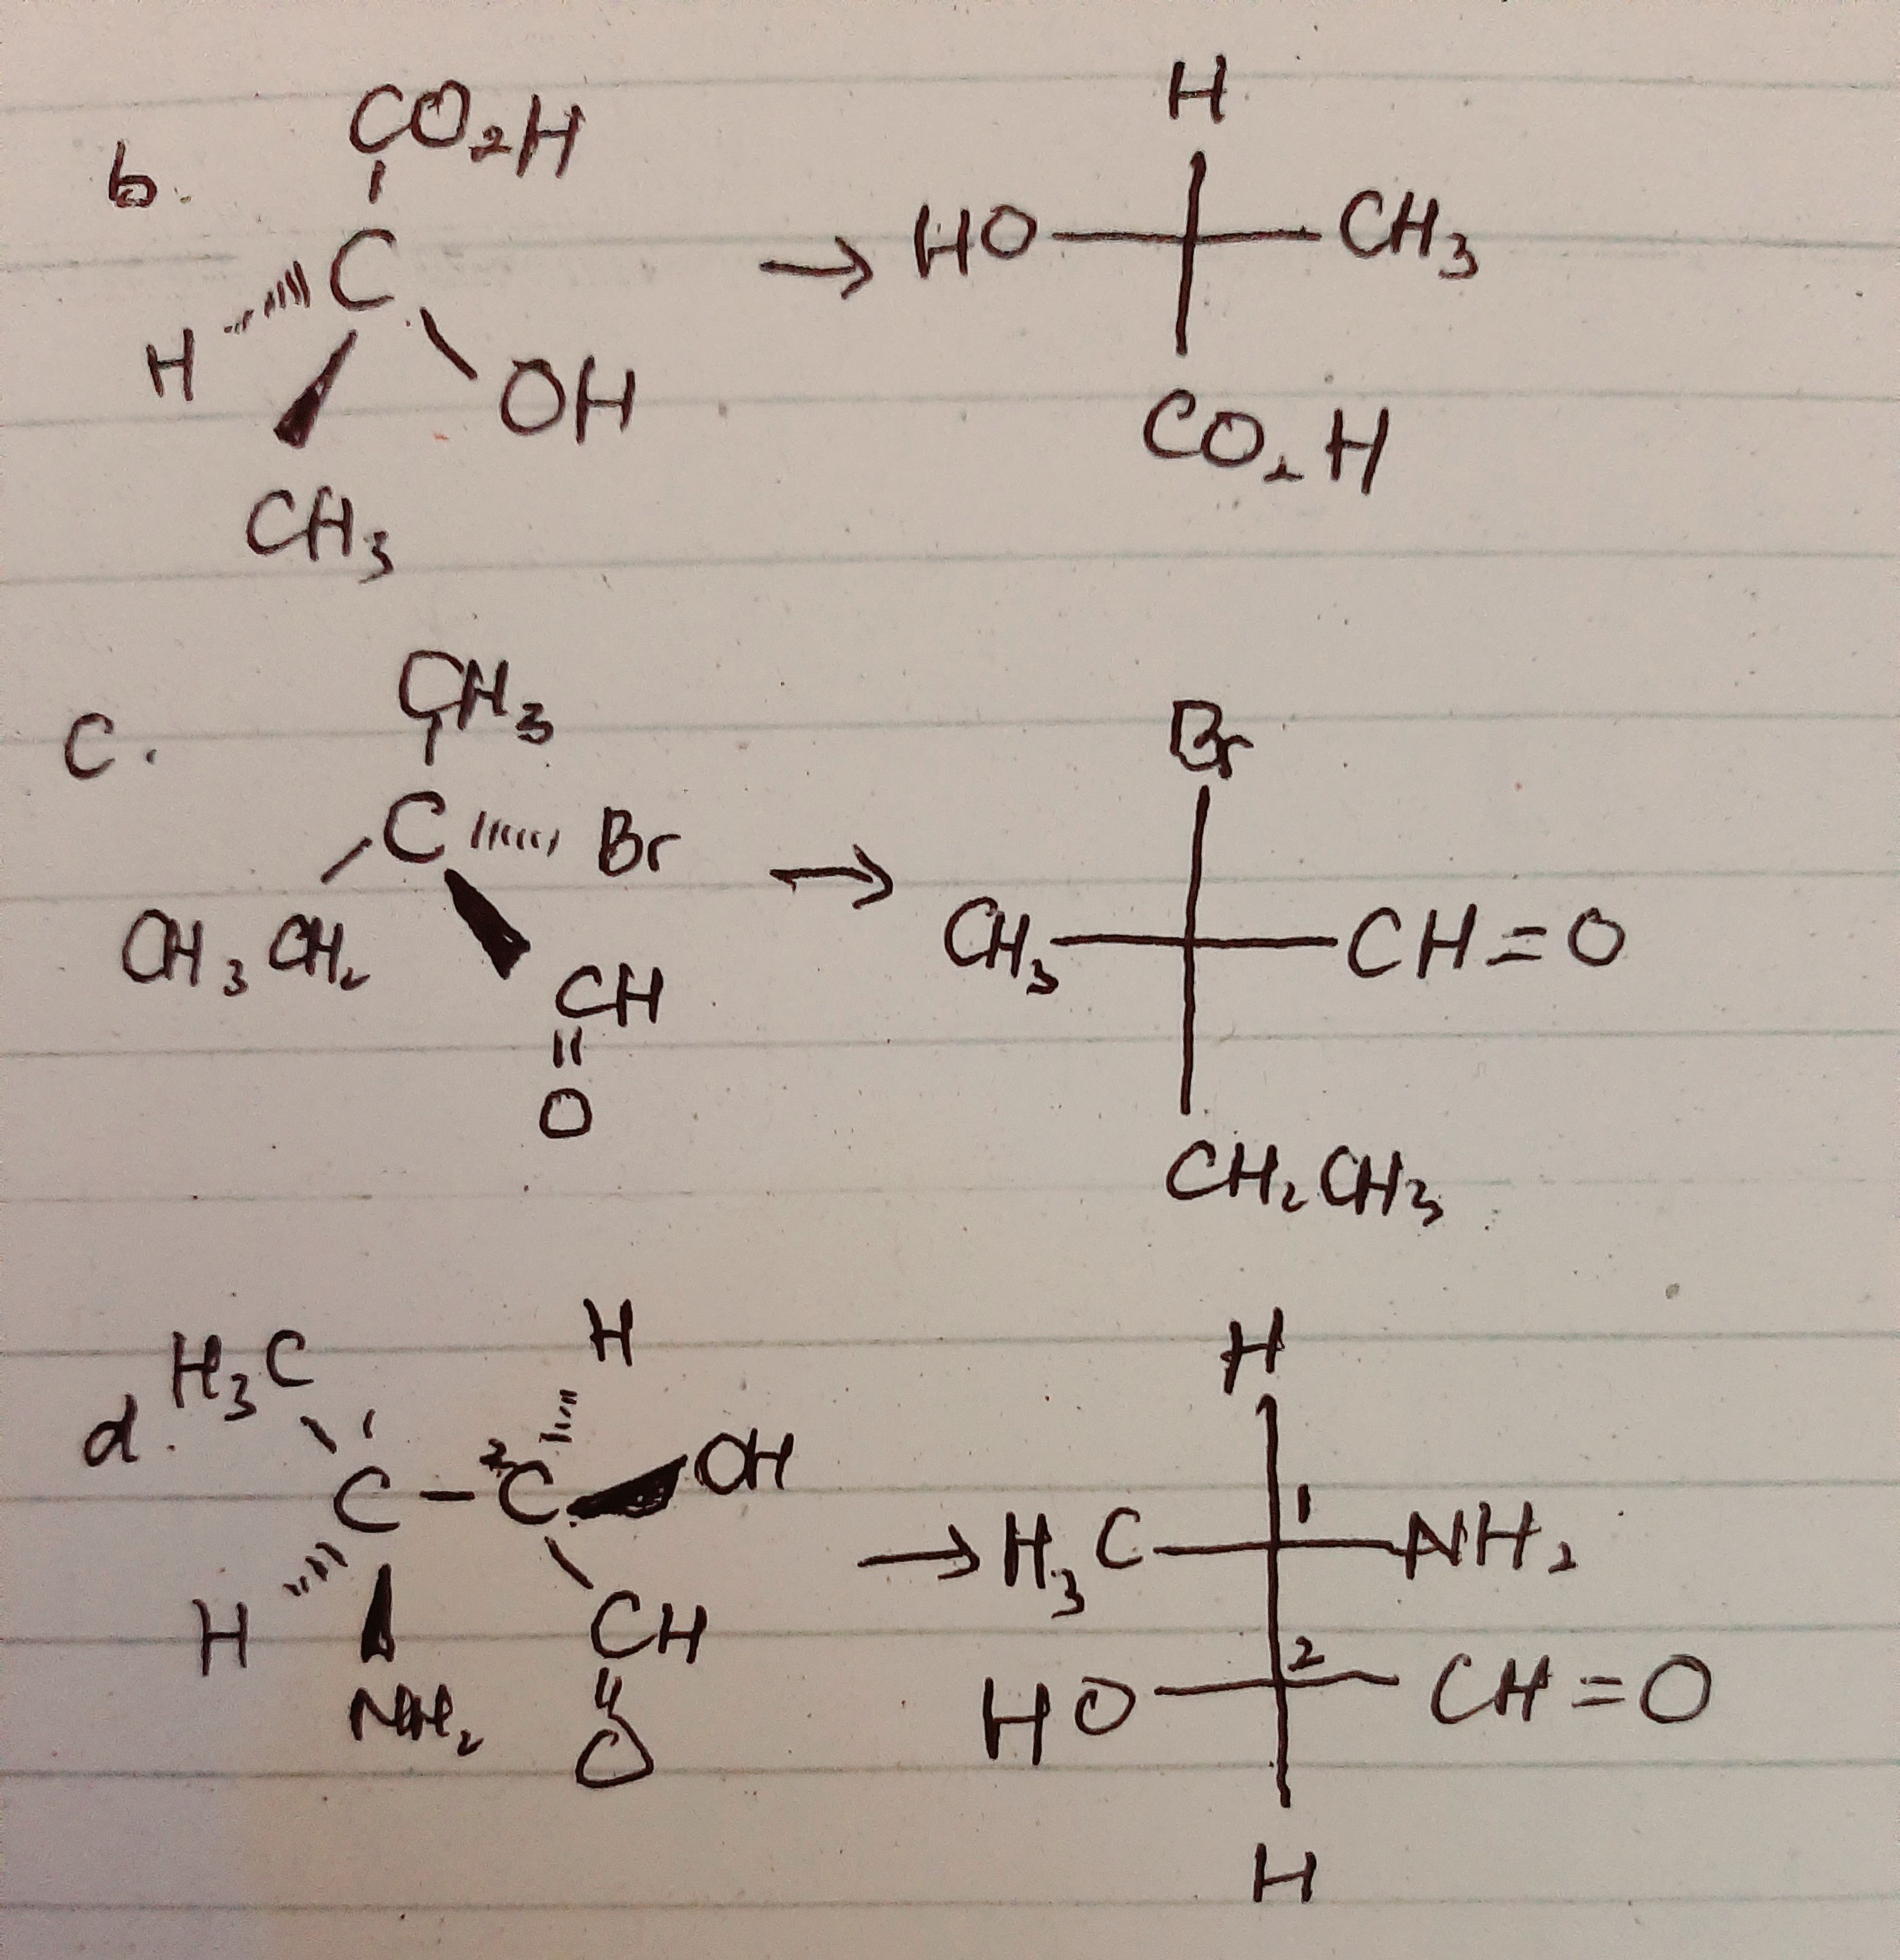 b.
CO₂H
C
H
OH
CH₃
→
H
HO
CH₃
CO₂H
C.
CH₃
C
Br
CH₃CH₂
CH
O
→
Br
CH₃
CH=O
CH₂CH₃
d.
H₃C
H
C - ²C
OH
H
NH₂
CH
O
→
H
H₃C
1
NH₂
HO
2
CH=O
H